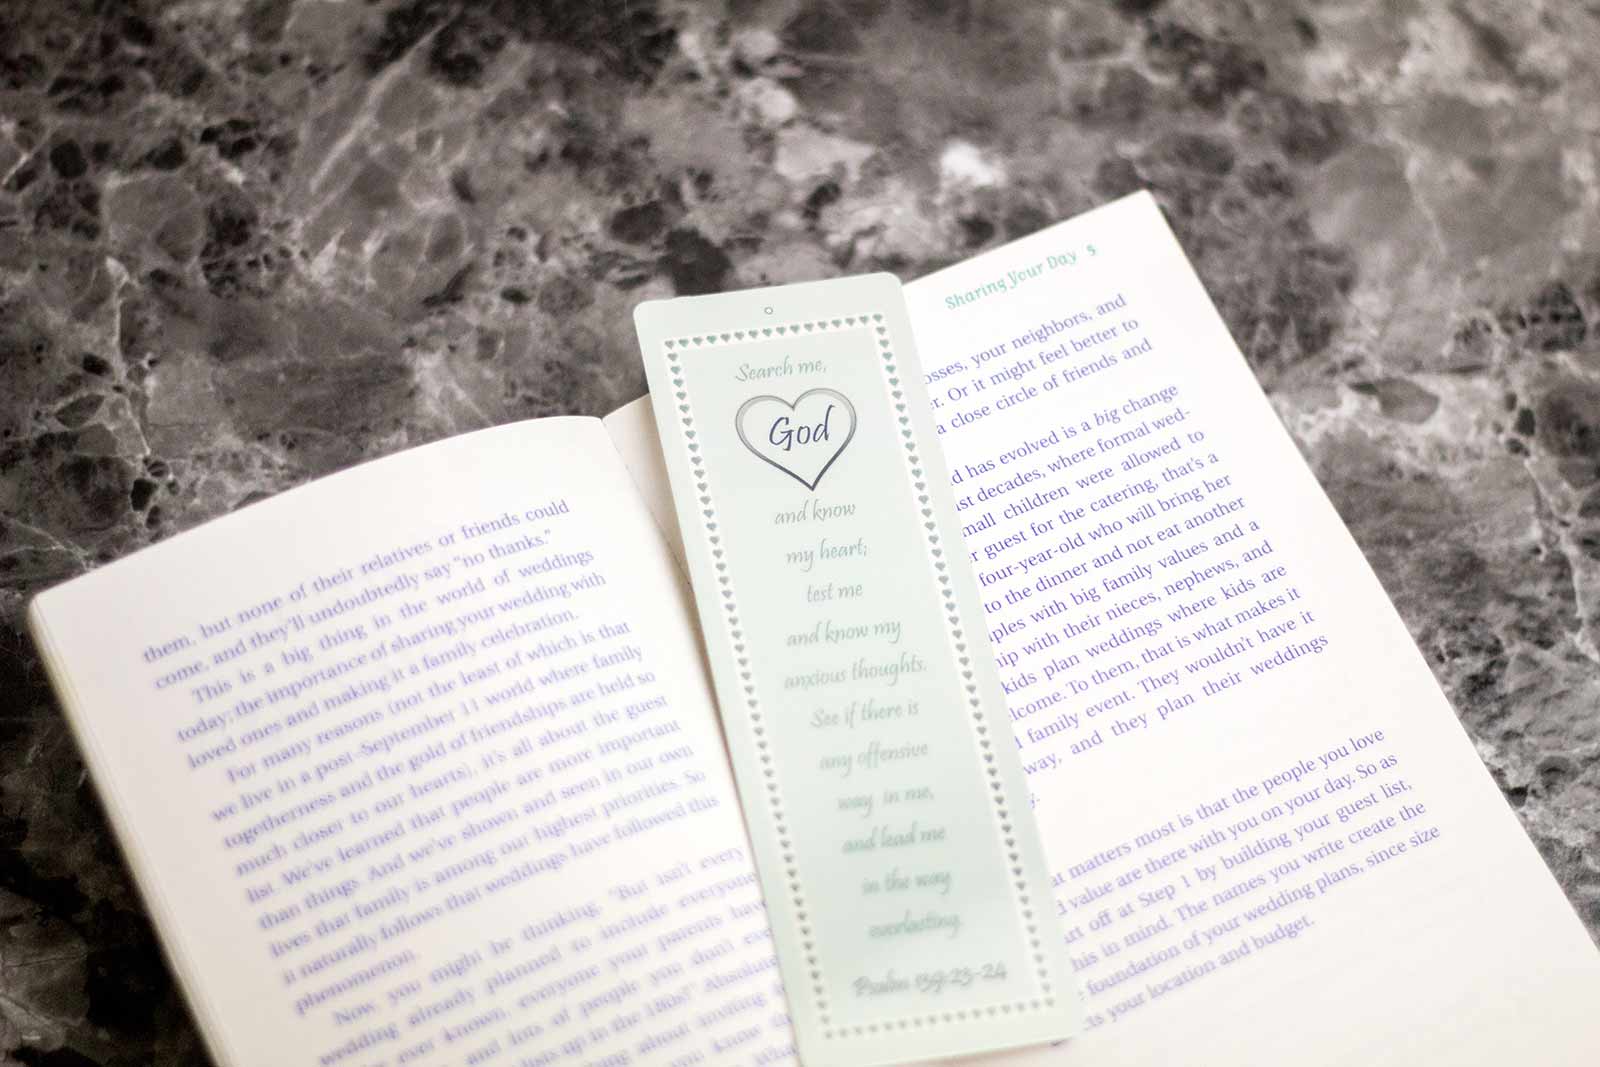 them, but none of their relatives or friends could
come, and they'll undoubtedly say "no thanks."
This is a big thing in the world of weddings
today; the importance of sharing your wedding with
loved ones and making it a family celebration.
For many reasons (not the least of which is that
we live in a post–September 11 world where family
togetherness and the gold of friendships are held so
much closer to our hearts), it's all about the guest
list. We've learned that people are more important
than things. And we've shown and seen in our own
lives that family is among our highest priorities. So
it naturally follows that weddings have followed this
phenomenon.
Now, you might be thinking, "But isn't every
wedding already planned to include everyone
ever known, everyone your parents have
and lots of people you don't
lists up in the 180s?" Absolute
about inviting
you know
Search me,
God
and know
my heart;
test me
and know my
anxious thoughts.
See if there is
any offensive
way in me,
and lead me
in the way
everlasting.
Psalm 139:23-24
Sharing Your Day 5
osses, your neighbors, and
r. Or it might feel better to
a close circle of friends and
d has evolved is a big change
st decades, where formal wed-
mall children were allowed to
r guest for the catering, that's a
four-year-old who will bring her
to the dinner and not eat another
ples with big family values and a
ip with their nieces, nephews, and
kids plan weddings where kids are
lcome. To them, that is what makes it
l family event. They wouldn't have it
way, and they plan their weddings
y.
at matters most is that the people you love
d value are there with you on your day. So as
rt off at Step 1 by building your guest list,
his in mind. The names you write create the
foundation of your wedding plans, since size
ts your location and budget.